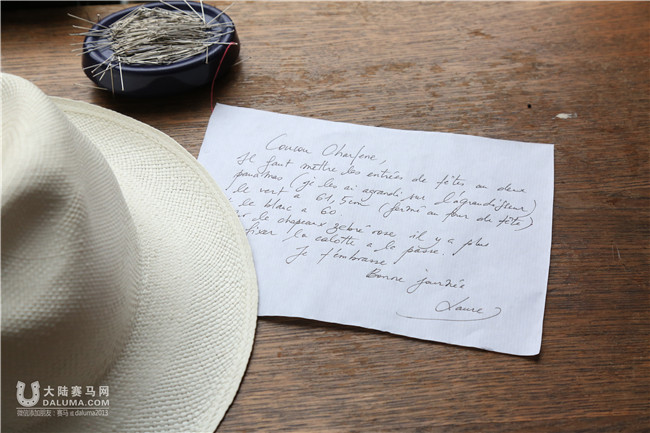 Coucou Charlene,
Il faut mettre les entrées de têtes au deux
panamas (je les ai agrandi sur l'agrandisseur)
le vert à 61,5cm (fermé au tour de tête)
le blanc a 60.
le chapeaux zebré rose il y a plus
fixer la calotte a la passe.
Je t'embrasse
Bonne journée
Laure
大陆赛马网
DALUMA.COM
微信添加朋友:赛马 or daluma2013